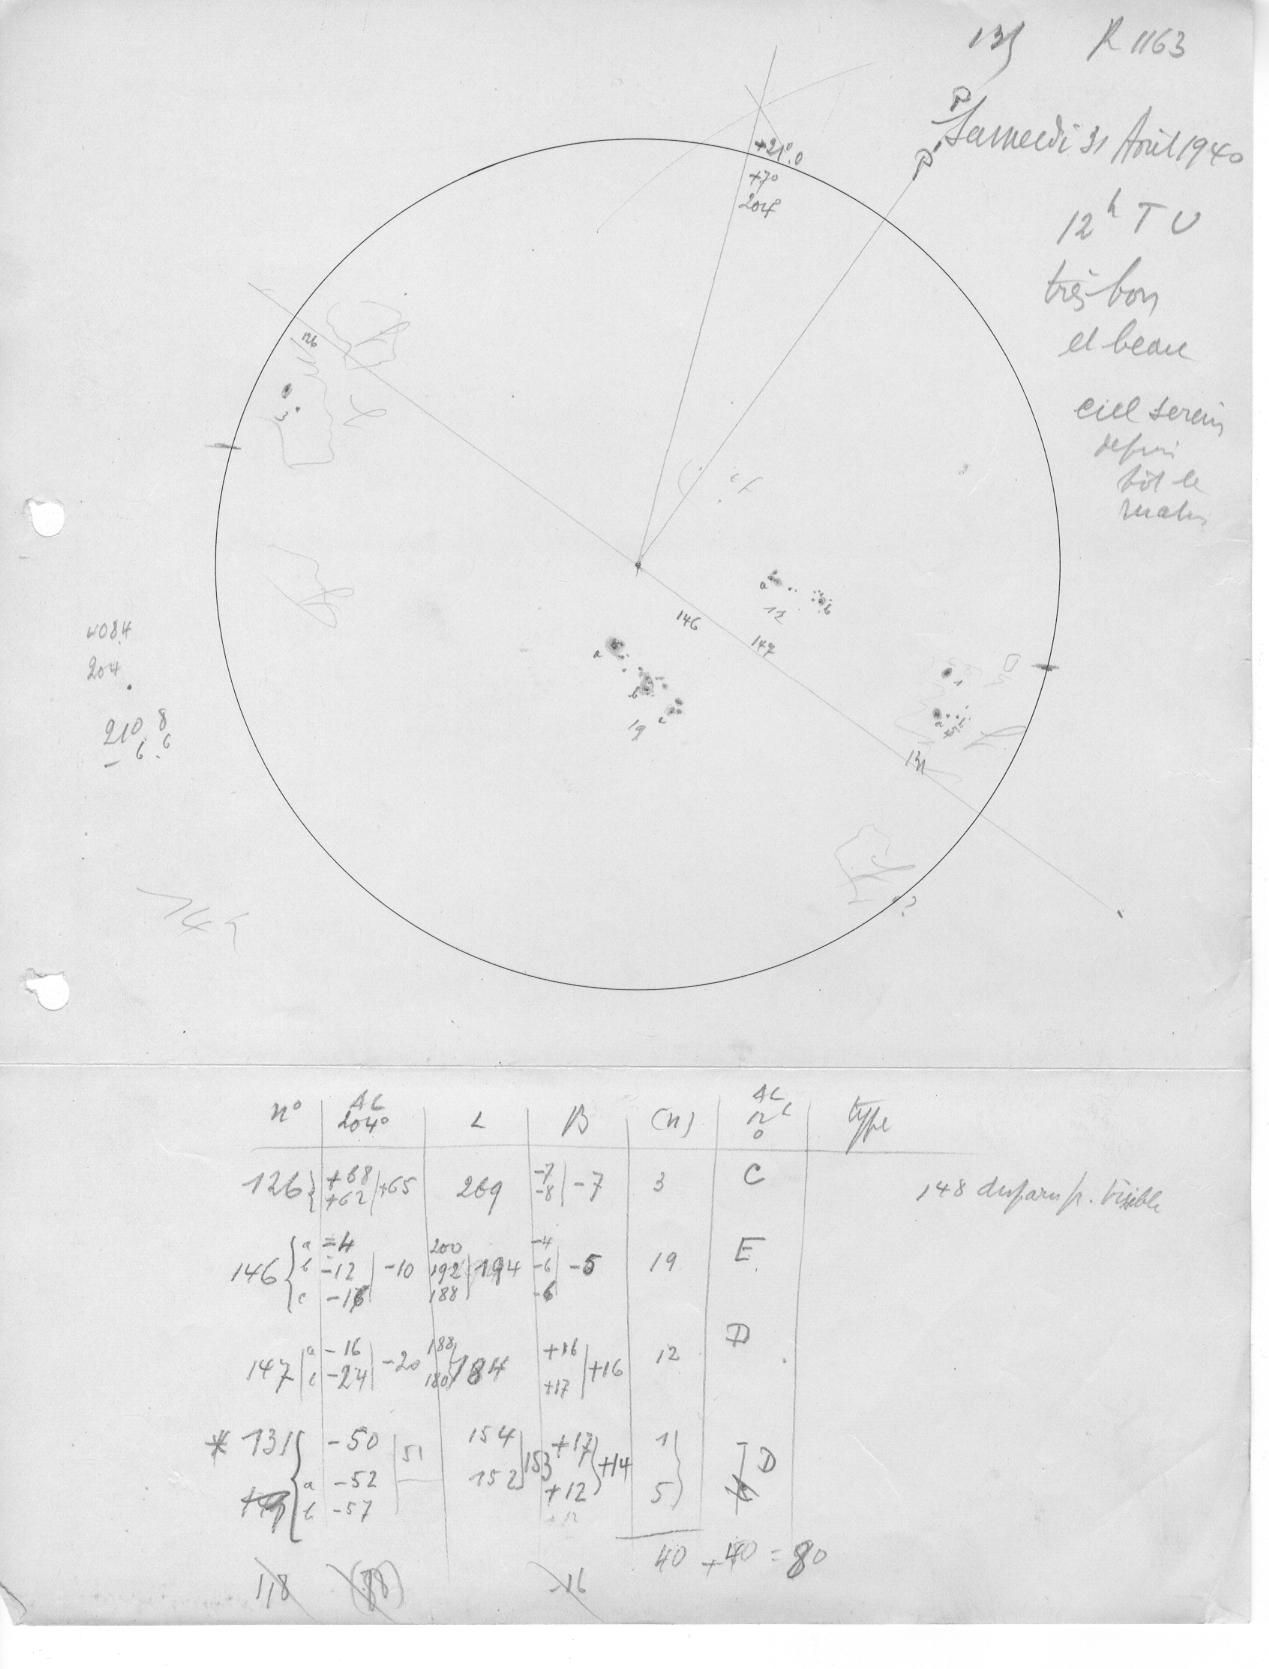 135 R 1163
P
Samedi 31 Août 1940
P
12h TU
très bon
et beau
ciel serein
depuis
tôt le
matin
+21°.0
+7°
204°
126
3
a
b
12
146
147
a
b
c
19
1
a b
5
131
?
408.4
204
210.8
- 6.6
n° | AC 204° | L | B | (n) | AC 12h 0 | type
126 { +68 +62 | +65 | 269 | -7 -8 | -7 | 3 | C
148 disparu p. visible
146 { a -4 | 200 | -4
b -12 | -10 | 192 | 194 | -6 | -5 | 19 | E
c -16 | 188 | -6
147 | a -16 | -20 | 188 | 184 | +16 | +16 | 12 | D
c -24 | 180 | +17
* 131 { -50 | 51 | 154 | 153 | +17 | +14 | 1 | D
149 a -52 | 152 | +12 | 5
b -57
40 + 40 = 80
118 (88) -16